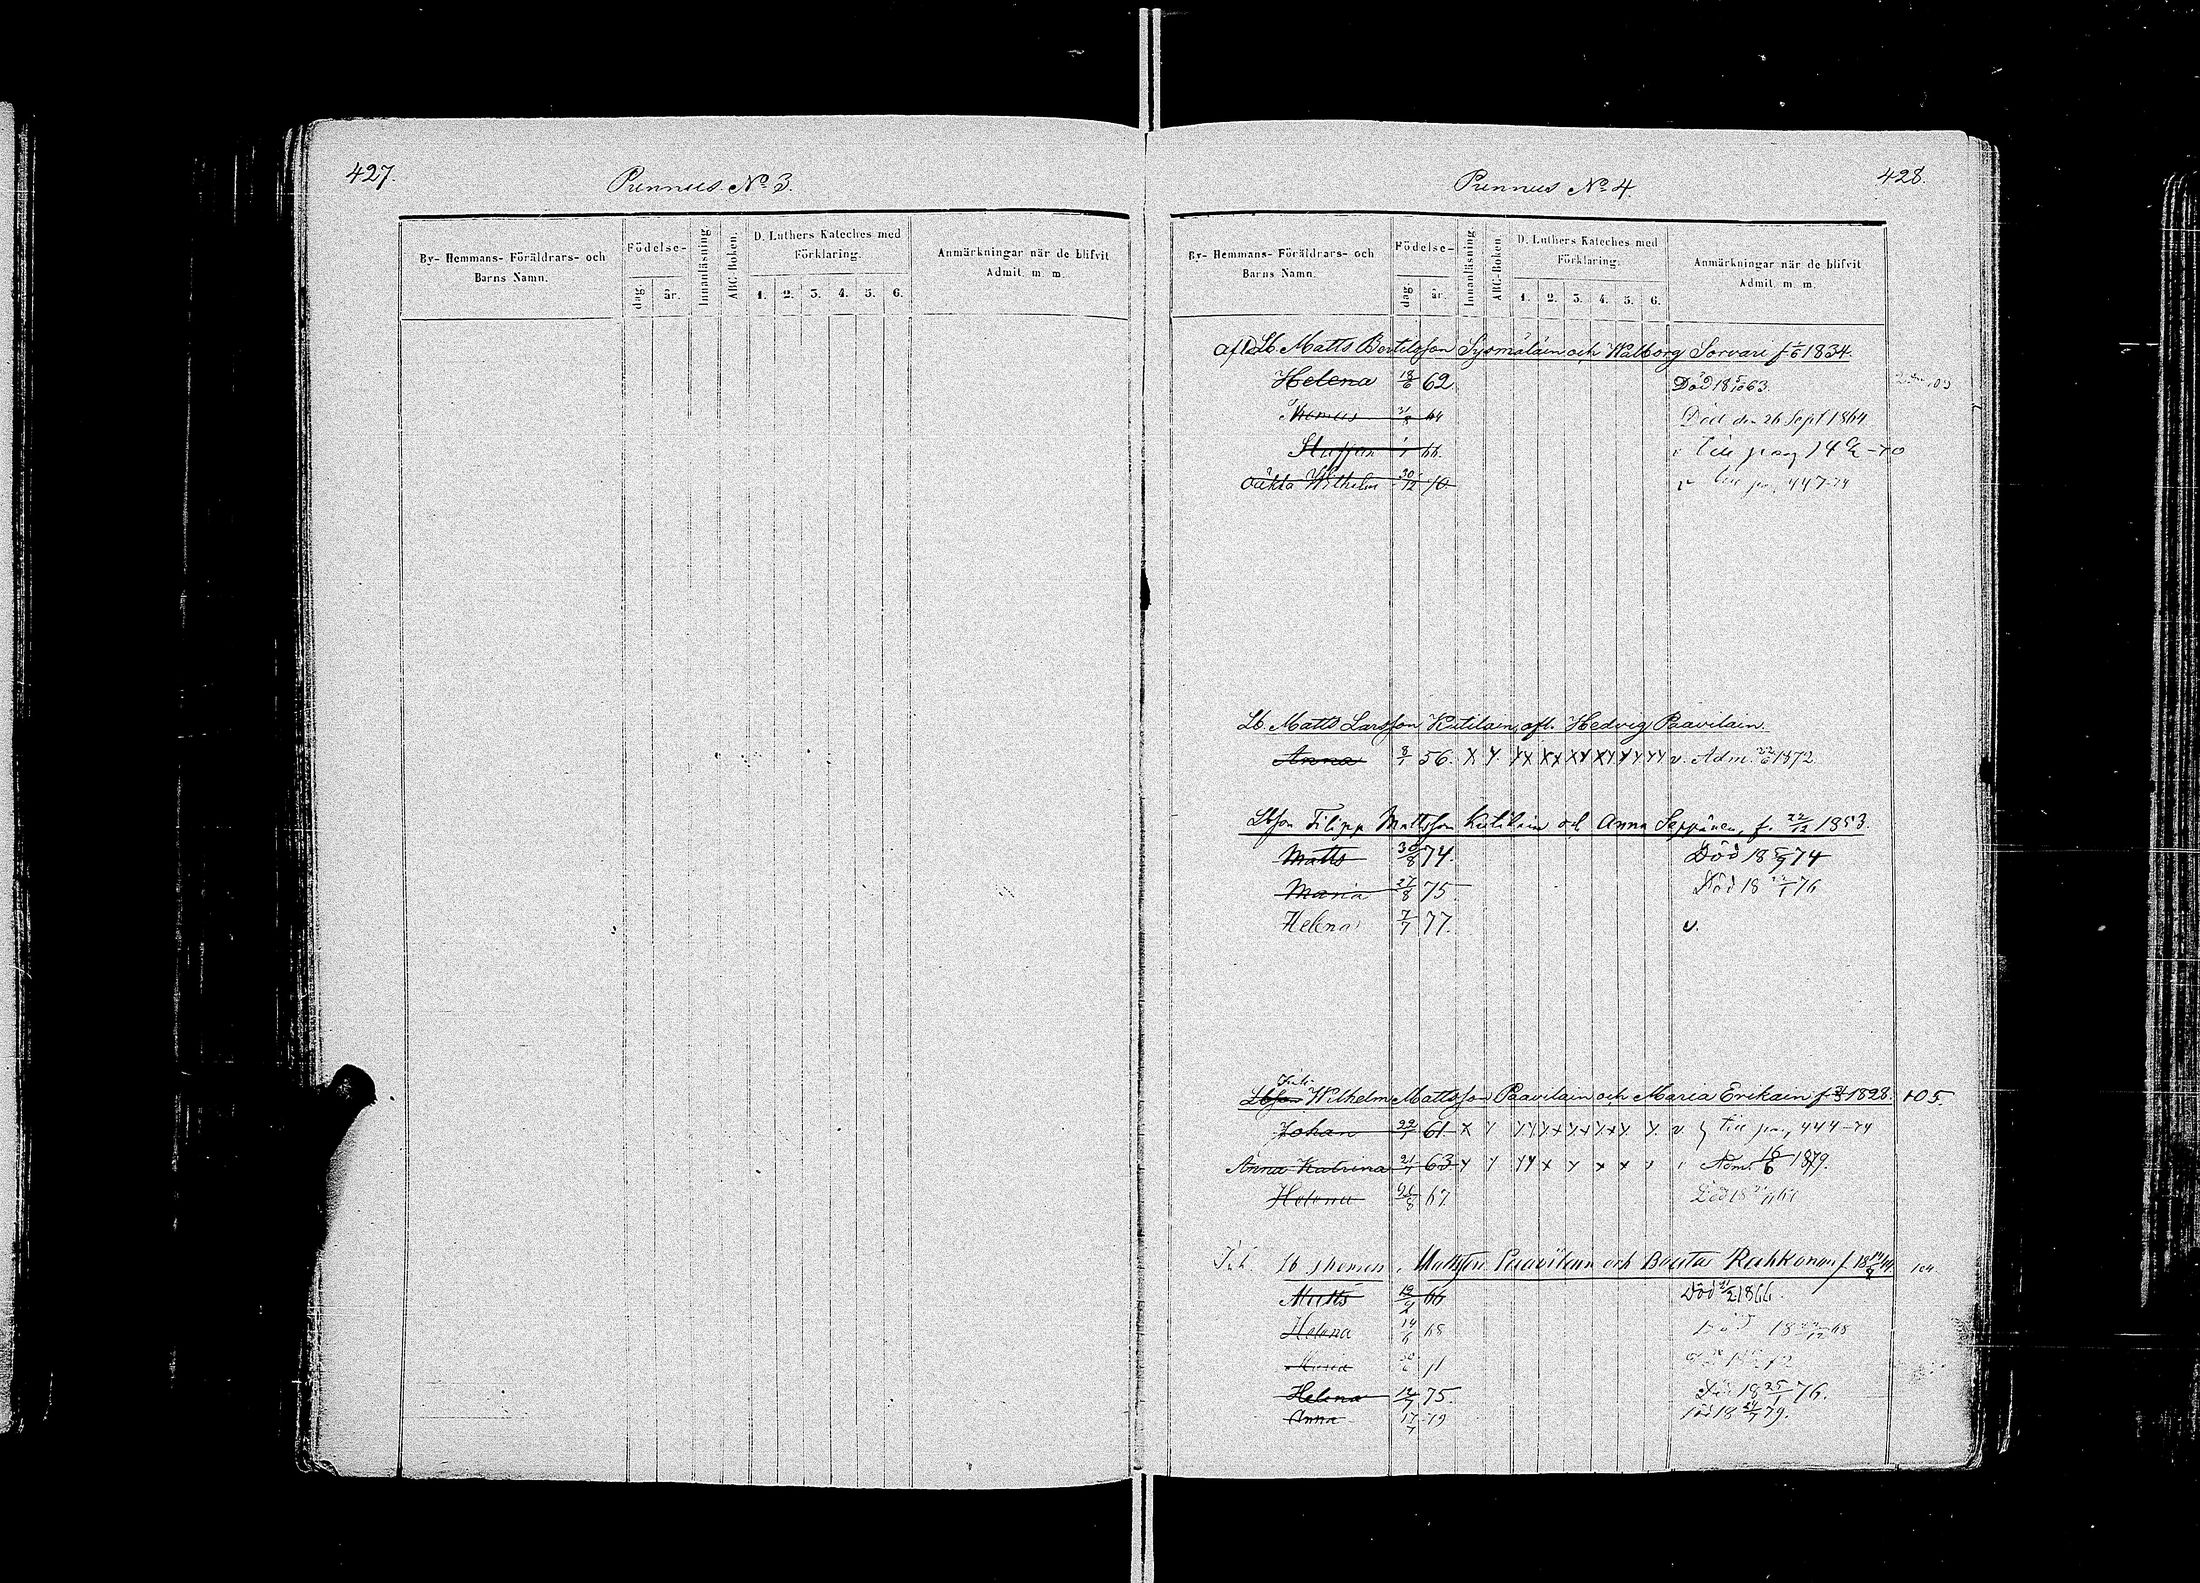 427.
Pennus. No 3.
By- Hemmans- Föräldrars- och Barns Namn.
Födelse-
dag
år.
Innanläsning
ABC-Boken.
D. Luthers Kateches med Förklaring.
1. 2. 3. 4. 5. 6.
Anmärkningar när de blifvit Admit. m. m.
428.
Pennus No 4.
By- Hemmans- Föräldrars- och Barns Namn.
Födelse-
dag
år.
Innanläsning
ABC-Boken.
D. Luthers Kateches med Förklaring.
1. 2. 3. 4. 5. 6.
Anmärkningar när de blifvit Admit. m. m.
afl. Lb. Matts Bertilsson Sysmäläin och Walborg Sorvari f 1/6 1834.
Helena 18/6 62 Död 18 5/10 63.
Thomas 64 Död den 26 Sept 1864
Staffan 66.
oäkta Wilhelm 30/12 70 v till pag 447-74
Lb. Matts Larsson Kutilain, afl. Hedvig Paavilain.
Anna 8/1 56. X Y. YX XX XY XY YY YY v. Adm. 1872.
Lbson Filipp Mattsson Kutilain och Anna Seppänen, f. 22/12 1853.
Matts 30/8 74. Död 18 5/9 74
Maria 27/8 75 Död 18 /1 76
Helena 7/7 77. v.
Inh.
Lbson Wilhelm Mattsson Paavilain och Maria Erikain f 1828. 105.
Johan 22/1 61 v till pag 444-74
Anna Katrina 21/1 63 Adm. 16/6 1879.
Helena 26/8 67
Inh. Lb Thomas Mattson Paavilain och Beata Ruhkonen f 104.
Matts 12/2 66 Död 1866.
Helena 14/6 68 Död 18 /12 68
Maria 71
Helena 12/7 75. Död 18 25/1 76.
Anna 17/7 79 Död 18 79.